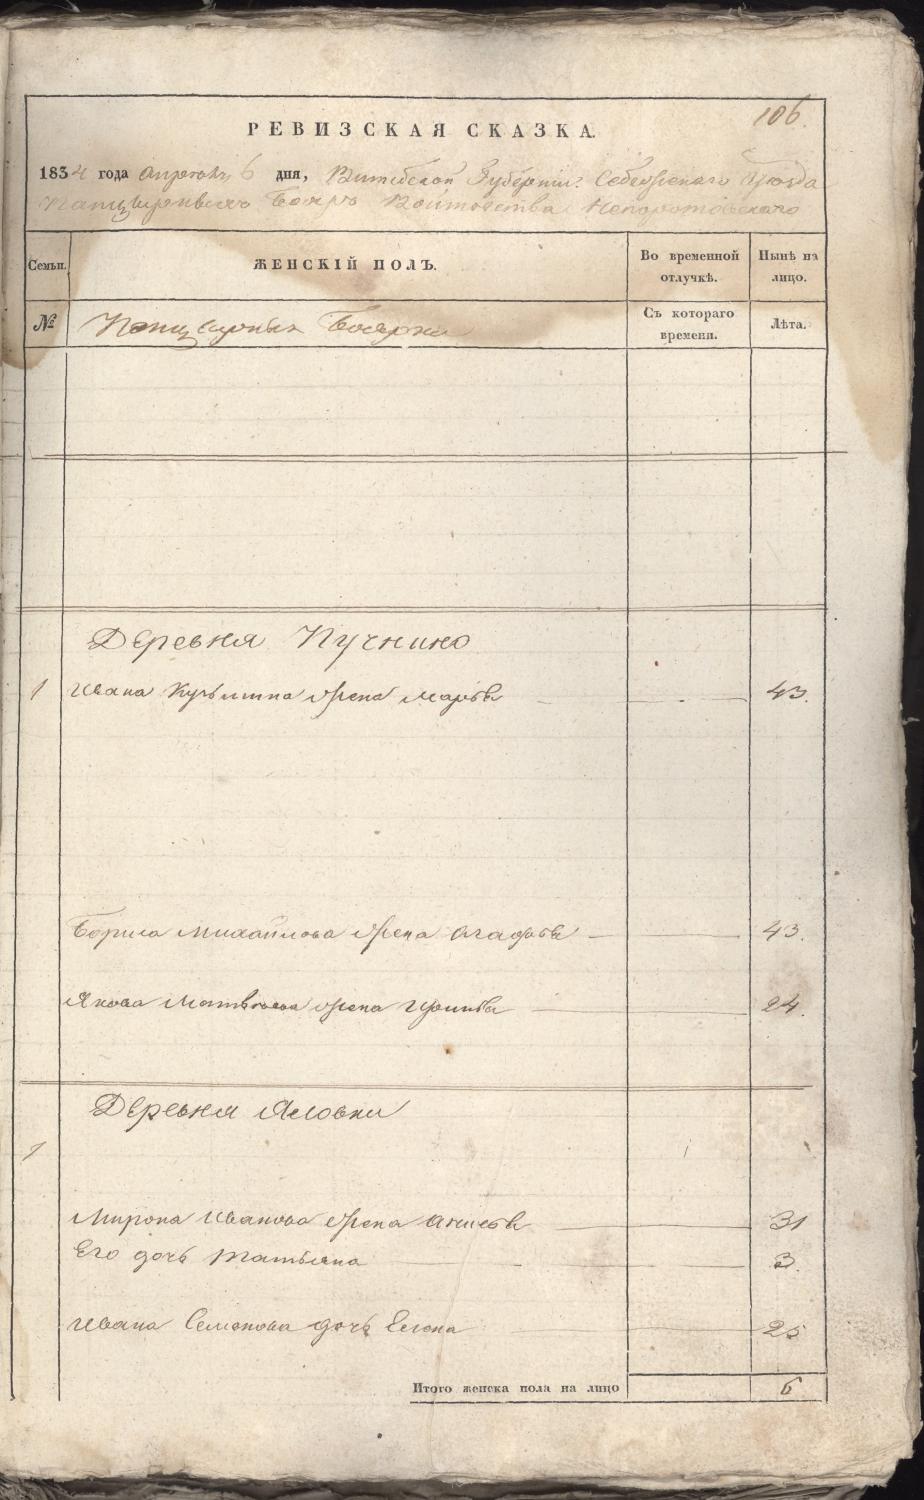 106.
РЕВИЗСКАЯ СКАЗКА.
1834 года Апреля 6 дня, Витебской Губерніи Себежскаго Уѣзда
Панцырныхъ Бояръ Войтовства Непоротовскаго
Семьи. ЖЕНСКІЙ ПОЛЪ. Во временной отлучкѣ. Нынѣ на лицо.
№ Панцырныя Боярки Съ котораго времени. Лѣта.
Деревня Пучнино
1 Ивана жена Марья 43.
Бориса Михайлова жена Агафья 43.
Якова Матвѣева жена 24.
Деревня Яловка
1
Мирона Иванова жена Анисья 31
Его дочь Татьяна 3.
Ивана Семенова дочь Елена 25
Итого женска пола на лицо 6